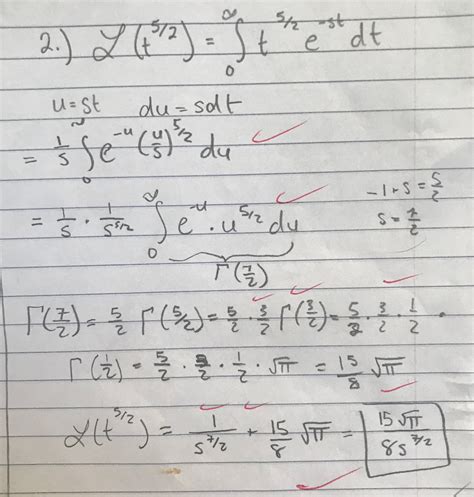 2.) ℒ(t^{5/2}) = ∫_0^∞ t^{5/2} e^{-st} dt
u = st   du = sdt
= 1/s ∫_0^∞ e^{-u} (u/s)^{5/2} du
= 1/s · 1/s^{5/2} ∫_0^∞ e^{-u} · u^{5/2} du   -1+s = 5/2
s = 7/2
Γ(7/2)
Γ(7/2) = 5/2 Γ(5/2) = 5/2 · 3/2 Γ(3/2) = 5/2 · 3/2 · 1/2 ·
Γ(1/2) = 5/2 · 3/2 · 1/2 · √π = 15/8 √π
ℒ(t^{5/2}) = 1/s^{7/2} + 15/8 √π = 15√π / 8s^{7/2}